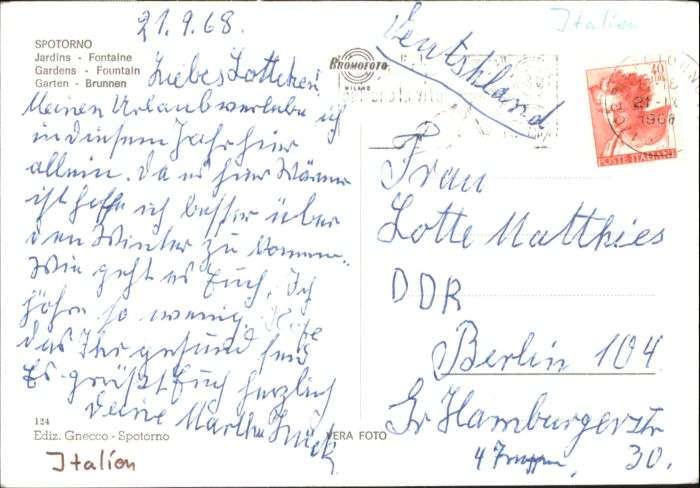 21.9.68.
Italien
SPOTORNO
Jardins - Fontaine
Gardens - Fountain
Garten - Brunnen
BROMOFOTO
MILANO
Deutshland
Liebes Lottchen
Meinen Urlaub verlebe ich
in diesem Jahr hier
allein. Da es hier Wärmer
ist hoffe ich besser über
den Winter zu kommen.
Wie geht es Euch, Ich
höhre so wenig.
das Ihr gesund seid
Es grüßt Euch herzlich
Deine Martha
40
21-IX
196
POSTE ITALIANE
Frau
Lotte Matthies
DDR
Berlin 104
Gr Hamburgerstr
30.
124
Ediz. Gnecco - Spotorno
VERA FOTO
Italien